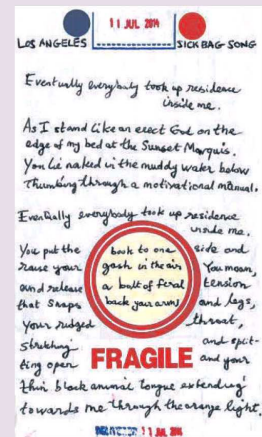 11 JUL 2014
LOS ANGELES SICK BAG SONG
Eventually everybody took up residence
inside me.
As I stand like an erect God on the
edge of my bed at the Sunset Marquis.
You lie naked in the muddy water below
Thumbing through a motivational manual.
Eventually everybody took up residence
inside me.
You put the book to one side and
raise your gash in the air. You moan,
and release a bolt of feral tension
that snaps back your arms and legs,
Your ridged throat,
stretching and split-
FRAGILE
ting open and your
thin black animal tongue extending
towards me through the orange light.
11 JUL 2014